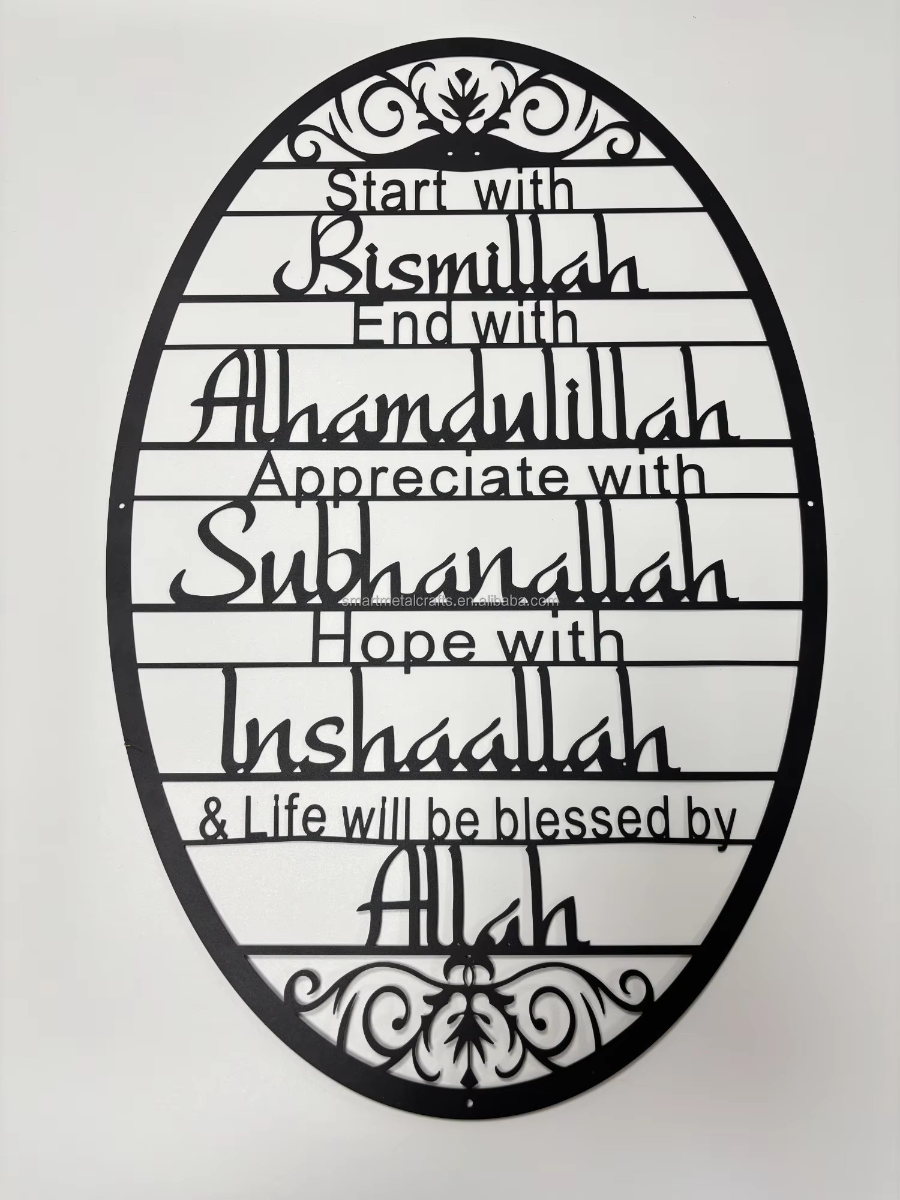 Start with
Bismillah
End with
Alhamdulillah
Appreciate with
Subhanallah
smartmetalcrafts.en.alibaba.com
Hope with
Inshaallah
& Life will be blessed by
Allah